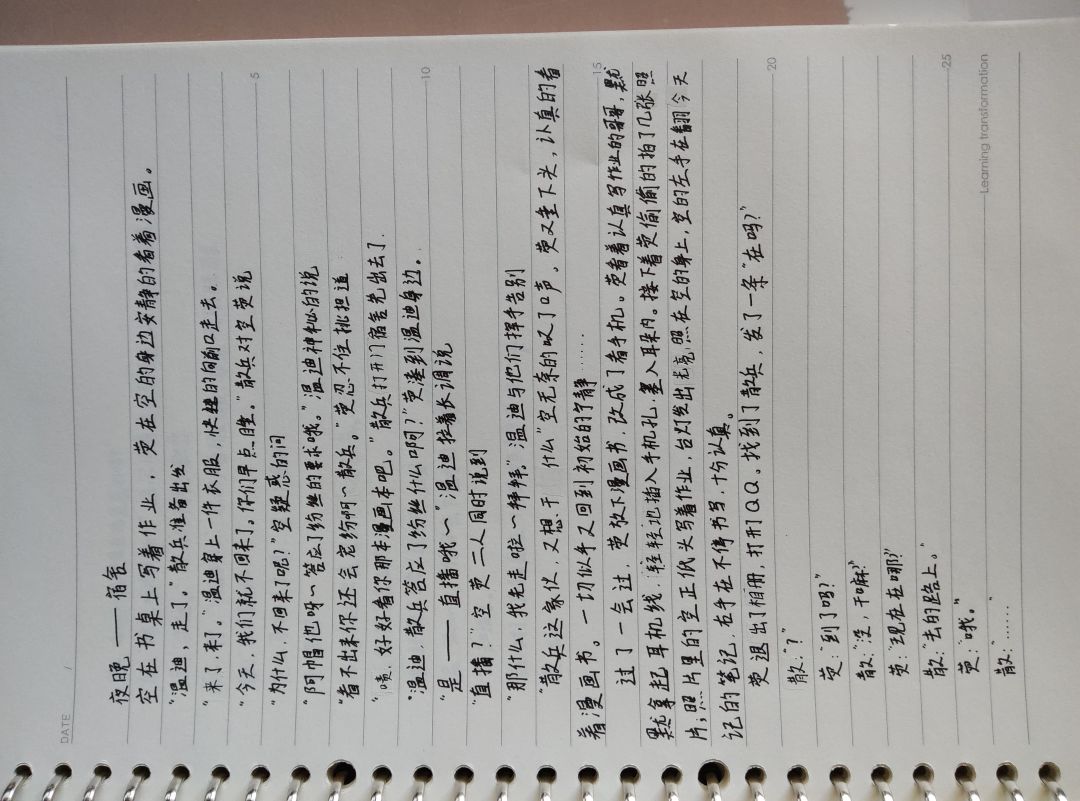 DATE
夜晚——宿舍
空在书桌上写着作业，荧在空的身边安静的看着漫画。
“温迪，走了。”散兵准备出发
“来了来了。”温迪穿上一件衣服，快速的向前门口走去。
“今天，我们就不回来了。你们早点睡。”散兵对空荧说
“为什么不回来了呢？”空疑惑的问
“阿帽他呀～答应了粉丝的要求哦。”温迪神秘的说
“看不出来你还会宠粉啊～散兵。”荧忍不住挑担道
“啧，好好看你那本漫画本吧。”散兵打开门宿舍先出去了.
“温迪，散兵答应了粉丝什么啊？”荧凑到温迪身边.
“是——直播哦～”温迪拉着长调说
“直播？”空荧二人同时说到
“那什么，我先走啦～拜拜.”温迪与他们挥手告别
“散兵这家伙，又想干什么”空无奈的叹了口声。荧又垂下头，认真的看
着漫画书。一切似乎又回到初始的宁静……
过了一会过，荧放下漫画书，改成了看手机。荧看着认真写作业的哥哥，默
默拿起耳机线，轻轻地插入手机孔，塞入耳朵内。接下着荧偷偷的拍了几张照
片；照片里的空正低头写着作业，台灯丝出光亮照在空的身上，空的左手在翻今天
记的笔记，右手在不停书写，十分认真。
荧退出了相册，打开QQ，找到了散兵，发了一条“在吗？”
散：“？”
荧：“到了吗？”
散：“没，干嘛？”
荧：“现在在哪？”
散：“去的路上。”
荧：“哦。”
散：“……”
5
10
15
20
25
Learning transformation